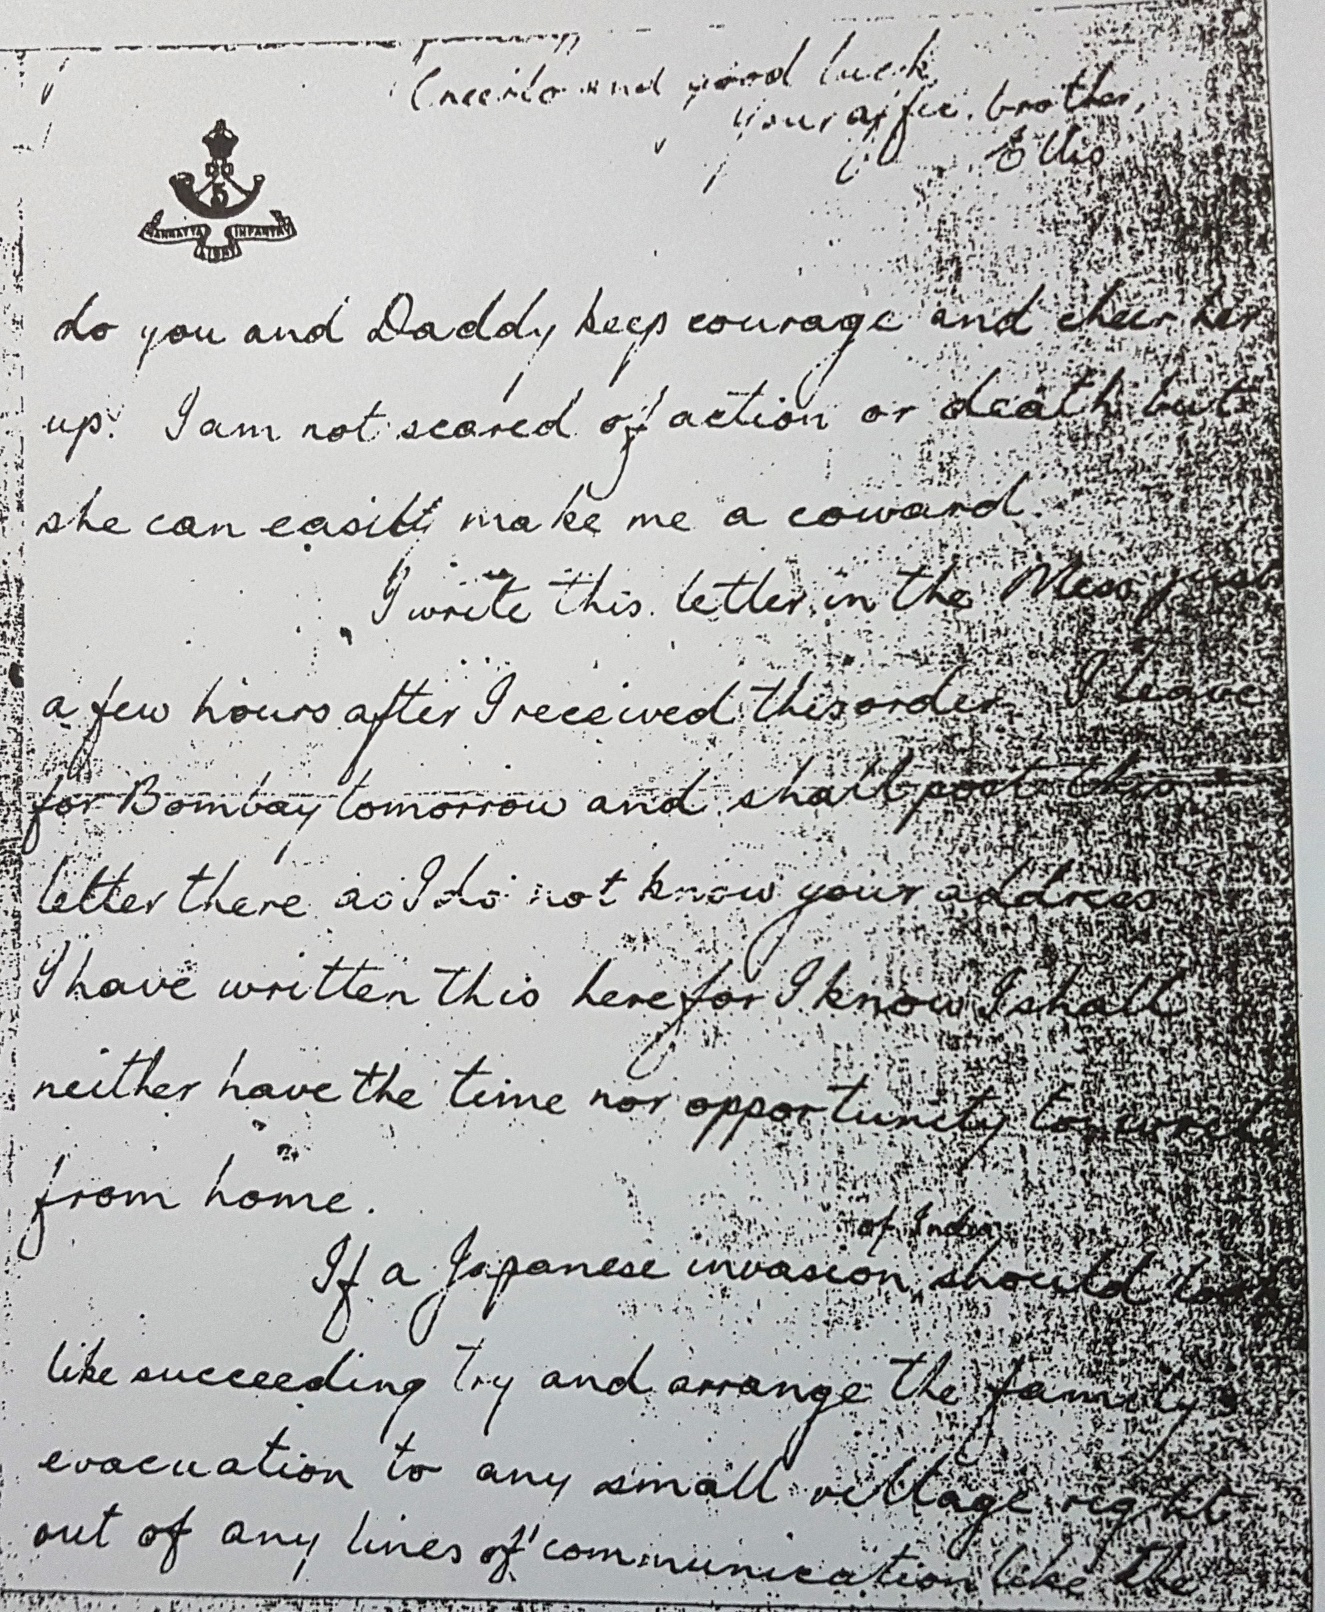 Cheerio and good luck
your affec. brother,
Ellis
5
MAHRATTA INFANTRY
LIGHT
do you and Daddy keep courage and cheer her
up. I am not scared of action or death but
she can easily make me a coward.
I write this letter in the Mess just
a few hours after I received this order. I leave
for Bombay tomorrow and shall post this
letter there as I do not know your address.
I have written this here for I know I shall
neither have the time nor opportunity to write
from home.
of India
If a Japanese invasion should look
like succeeding try and arrange the family's
evacuation to any small village right
out of any lines of communication like the